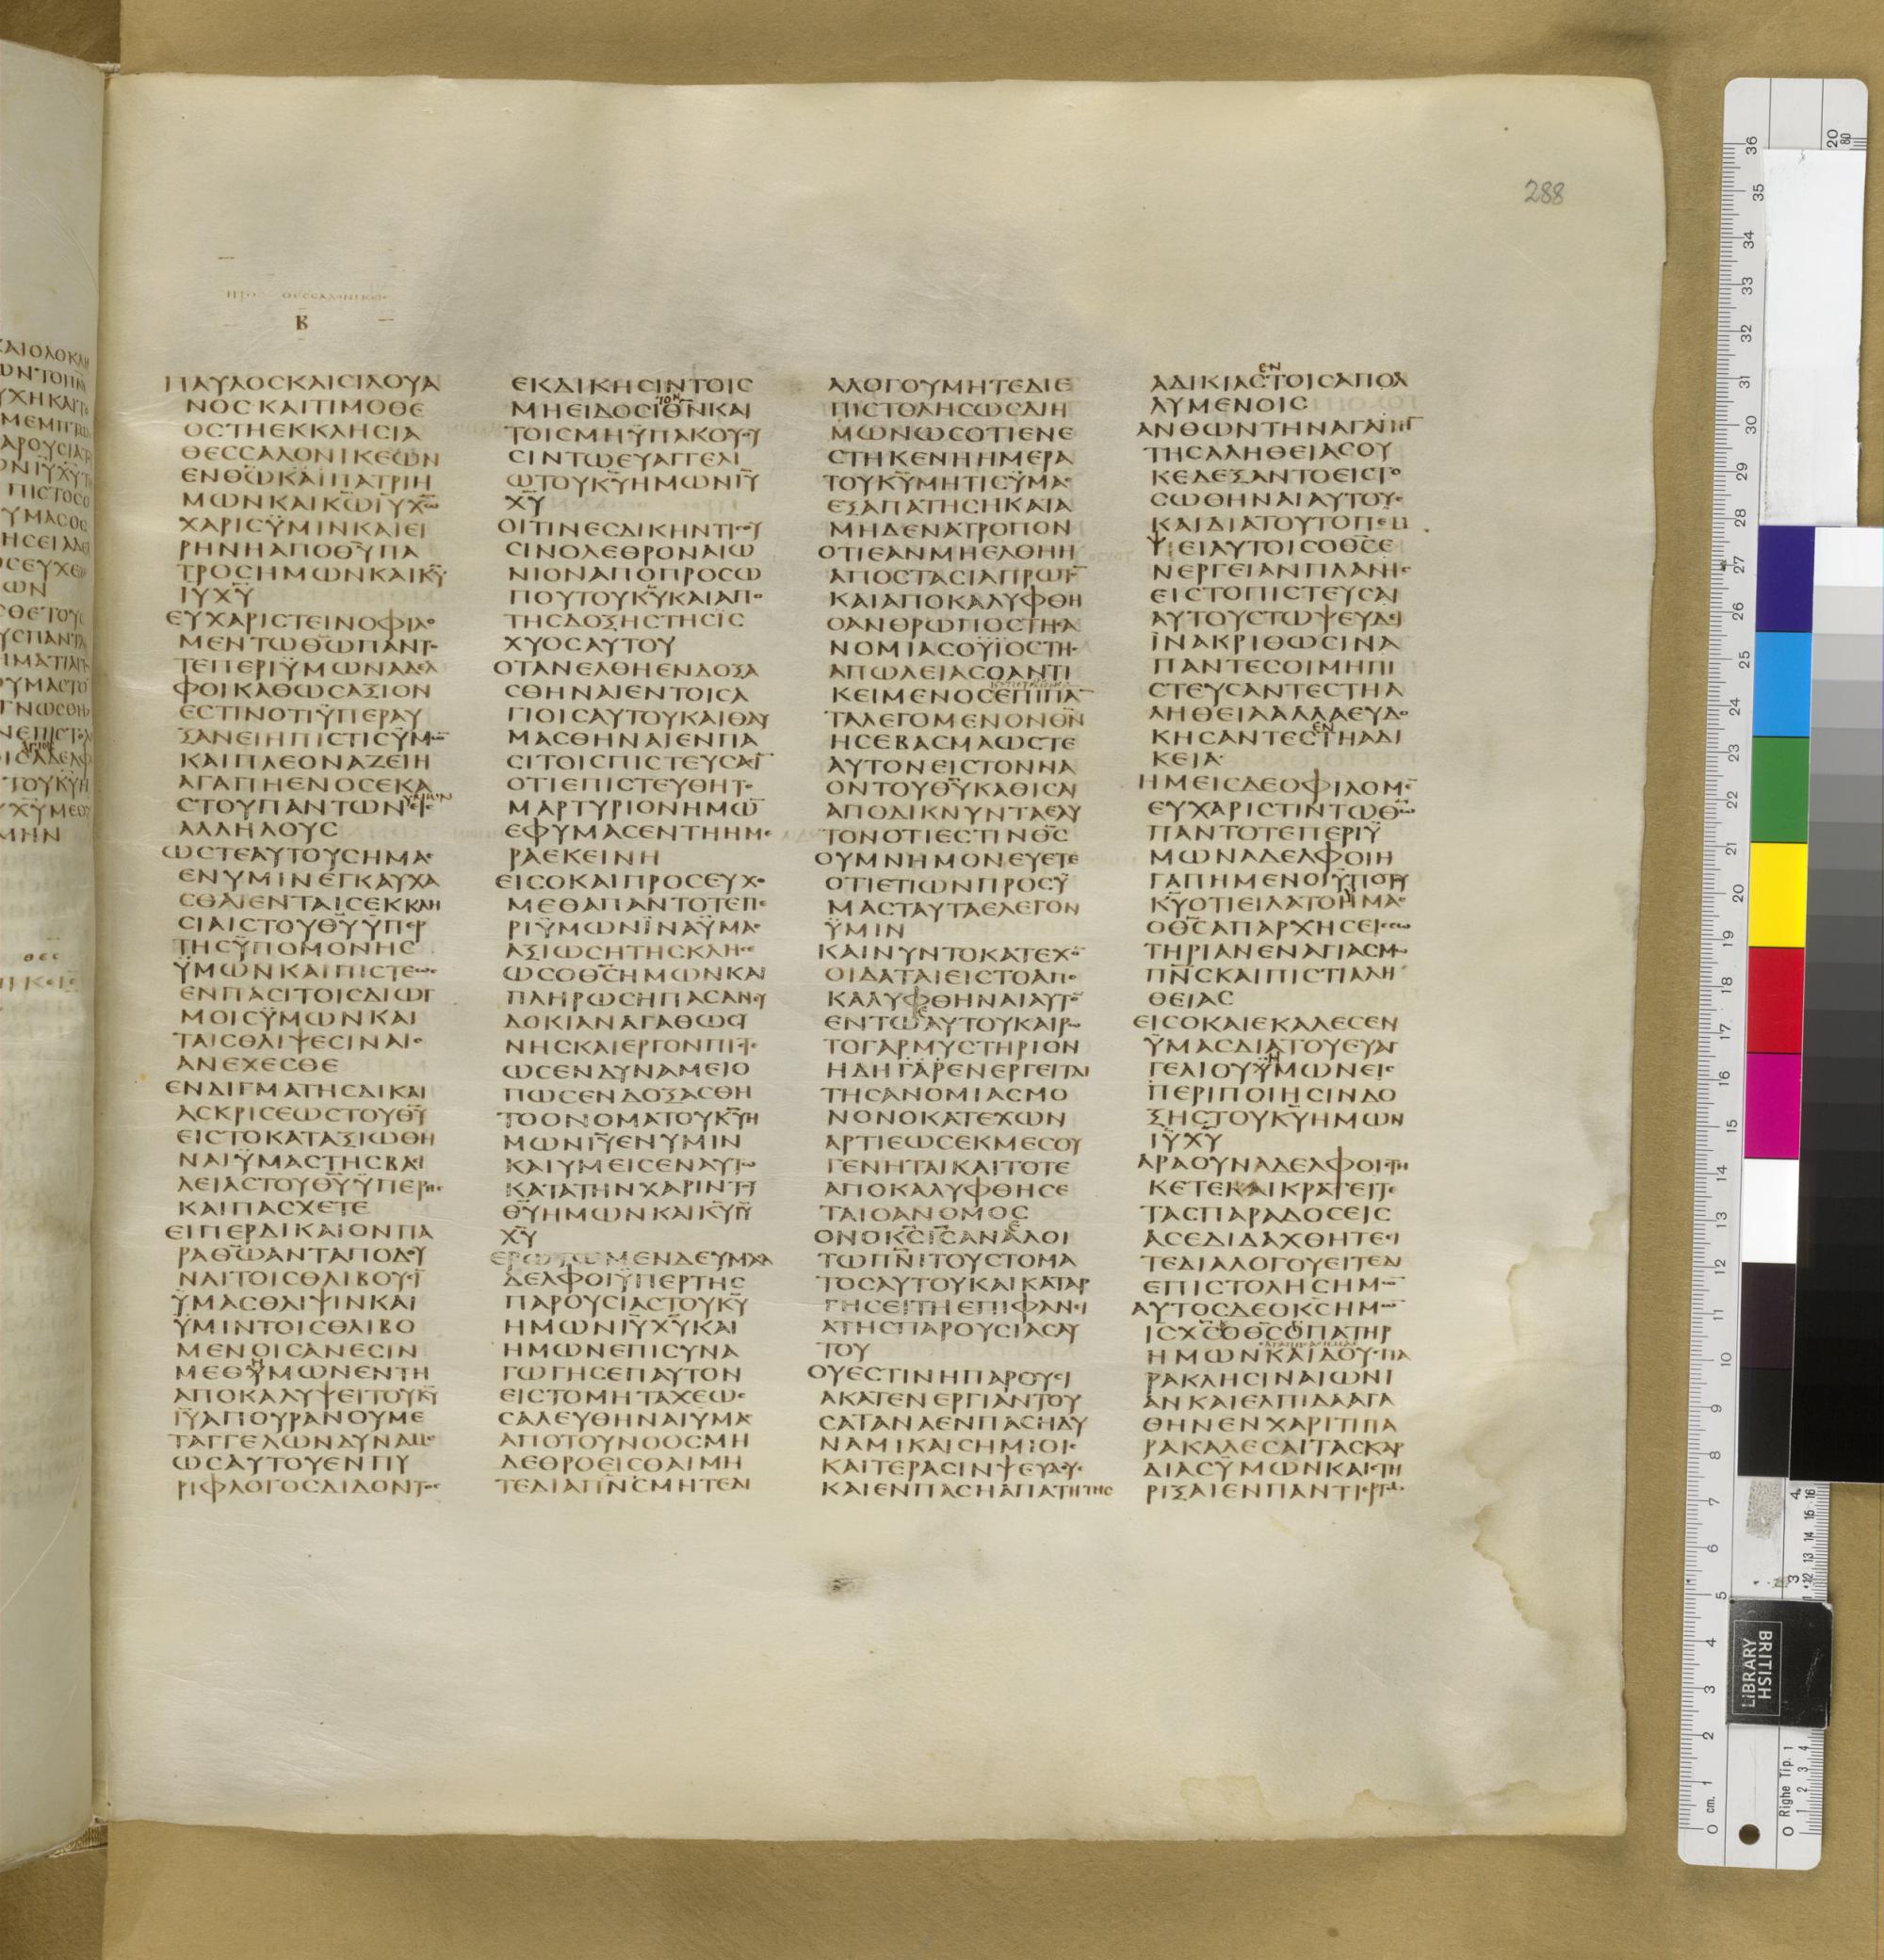 288
ΠΡΟΣ ΘΕΣΣΑΛΟΝΙΚΕΙΣ
Β
ΠΑΥΛΟϹΚΑΙϹΙΛΟΥΑ
ΝΟϹΚΑΙΤΙΜΟΘΕ
ΟϹΤΗΕΚΚΛΗϹΙΑ
ΘΕϹϹΑΛΟΝΙΚΕΩΝ
ΕΝΘ̅Ω̅ΚΑΙΠΑΤΡΙΗ
ΜΩΝΚΑΙΚ̅Ω̅Ι̅Υ̅Χ̅Ω̅
ΧΑΡΙϹΫΜΙΝΚΑΙΕΙ
ΡΗΝΗΑΠΟΘ̅Υ̅ΠΑ
ΤΡΟϹΗΜΩΝΚΑΙΚ̅Υ̅
Ι̅Υ̅Χ̅Υ̅
ΕΥΧΑΡΙϹΤΕΙΝΟΦΙΛΟ
ΜΕΝΤΩΘ̅Ω̅ΠΑΝΤΟ
ΤΕΠΕΡΙΫΜΩΝΑΔΕΛ
ΦΟΙΚΑΘΩϹΑΞΙΟΝ
ΕϹΤΙΝΟΤΙΫΠΕΡΑΥ
ΞΑΝΕΙΗΠΙϹΤΙϹΫΜΩ̅
ΚΑΙΠΛΕΟΝΑΖΕΙΗ
ΑΓΑΠΗΕΝΟϹΕΚΑ
ϹΤΟΥΠΑΝΤΩΝΥΜΩΝΕΙϹ
ΑΛΛΗΛΟΥϹ
ΩϹΤΕΑΥΤΟΥϹΗΜΑϹ
ΕΝΥΜΙΝΕΓΚΑΥΧΑ
ϹΘΑΙΕΝΤΑΙϹΕΚΚΛΗ
ϹΙΑΙϹΤΟΥΘ̅Υ̅ΫΠΕΡ
ΤΗϹΫΠΟΜΟΝΗϹ
ΫΜΩΝΚΑΙΠΙϹΤΕΩϹ
ΕΝΠΑϹΙΤΟΙϹΔΙΩΓ
ΜΟΙϹΫΜΩΝΚΑΙ
ΤΑΙϹΘΛΙΨΕϹΙΝΑΙϹ
ΑΝΕΧΕϹΘΕ
ΕΝΔΙΓΜΑΤΗϹΔΙΚΑΙ
ΑϹΚΡΙϹΕΩϹΤΟΥΘ̅Υ̅
ΕΙϹΤΟΚΑΤΑΞΙΩΘΗ
ΝΑΙΫΜΑϹΤΗϹΒΑϹΙ
ΛΕΙΑϹΤΟΥΘ̅Υ̅ΫΠΕΡΗϹ
ΚΑΙΠΑϹΧΕΤΕ
ΕΙΠΕΡΔΙΚΑΙΟΝΠΑ
ΡΑΘ̅Ω̅ΑΝΤΑΠΟΔΟΥ
ΝΑΙΤΟΙϹΘΛΙΒΟΥϹΙ̅
ΫΜΑϹΘΛΙΨΙΝΚΑΙ
ΫΜΙΝΤΟΙϹΘΛΙΒΟ
ΜΕΝΟΙϹΑΝΕϹΙΝ
ΜΕΘΫΜΩΝΕΝΤΗ
ΑΠΟΚΑΛΥΨΕΙΤΟΥΚ̅Υ̅
Ι̅Υ̅ΑΠΟΥΡΑΝΟΥΜΕ
ΤΑΓΓΕΛΩΝΔΥΝΑΜΕ
ΩϹΑΥΤΟΥΕΝΠΥ
ΡΙΦΛΟΓΟϹΔΙΔΟΝΤΟϹ
ΕΚΔΙΚΗϹΙΝΤΟΙϹ
ΜΗΕΙΔΟϹΙΤΟΝΘ̅Ν̅ΚΑΙ
ΤΟΙϹΜΗΫΠΑΚΟΥΟΥ
ϹΙΝΤΩΕΥΑΓΓΕΛΙ
ΩΤΟΥΚ̅Υ̅ΗΜΩΝΙ̅Υ̅
Χ̅Υ̅
ΟΙΤΙΝΕϹΔΙΚΗΝΤΙϹΟΥ
ϹΙΝΟΛΕΘΡΟΝΑΙΩ
ΝΙΟΝΑΠΟΠΡΟϹΩ
ΠΟΥΤΟΥΚ̅Υ̅ΚΑΙΑΠΟ
ΤΗϹΔΟΞΗϹΤΗϹΙϹ
ΧΥΟϹΑΥΤΟΥ
ΟΤΑΝΕΛΘΗΕΝΔΟΞΑ
ϹΘΗΝΑΙΕΝΤΟΙϹΑ
ΓΙΟΙϹΑΥΤΟΥΚΑΙΘΑΥ
ΜΑϹΘΗΝΑΙΕΝΠΑ
ϹΙΤΟΙϹΠΙϹΤΕΥϹΑϹΙ̅
ΟΤΙΕΠΙϹΤΕΥΘΗΤΟ
ΜΑΡΤΥΡΙΟΝΗΜΩ̅
ΕΦΥΜΑϹΕΝΤΗΗΜΕ
ΡΑΕΚΕΙΝΗ
ΕΙϹΟΚΑΙΠΡΟϹΕΥΧΟ
ΜΕΘΑΠΑΝΤΟΤΕΠΕ
ΡΙΫΜΩΝΪΝΑΫΜΑϹ
ΑΞΙΩϹΗΤΗϹΚΛΗϹΕ
ΩϹΟΘ̅Ϲ̅ΗΜΩΝΚΑΙ
ΠΛΗΡΩϹΗΠΑϹΑΝΕΥ
ΔΟΚΙΑΝΑΓΑΘΩϹΥ
ΝΗϹΚΑΙΕΡΓΟΝΠΙϹΤΕ
ΩϹΕΝΔΥΝΑΜΕΙΟ
ΠΩϹΕΝΔΟΞΑϹΘΗ
ΤΟΟΝΟΜΑΤΟΥΚ̅Υ̅Η
ΜΩΝΙ̅Υ̅ΕΝΥΜΙΝ
ΚΑΙΥΜΕΙϹΕΝΑΥΤΩ
ΚΑΤΑΤΗΝΧΑΡΙΝΤΟΥ
Θ̅Υ̅ΗΜΩΝΚΑΙΚ̅Υ̅Ι̅Υ̅
Χ̅Υ̅
ΕΡΩΤΩΜΕΝΔΕΥΜΑϹΑ
ΔΕΛΦΟΙΫΠΕΡΤΗϹ
ΠΑΡΟΥϹΙΑϹΤΟΥΚ̅Υ̅
ΗΜΩΝΙ̅Υ̅Χ̅Υ̅ΚΑΙ
ΗΜΩΝΕΠΙϹΥΝΑ
ΓΩΓΗϹΕΠΑΥΤΟΝ
ΕΙϹΤΟΜΗΤΑΧΕΩϹ
ϹΑΛΕΥΘΗΝΑΙΥΜΑϹ
ΑΠΟΤΟΥΝΟΟϹΜΗ
ΔΕΘΡΟΕΙϹΘΑΙΜΗ
ΤΕΔΙΑΠ̅Ν̅Ϲ̅ΜΗΤΕΔΙ
ΑΛΟΓΟΥΜΗΤΕΔΙΕ
ΠΙϹΤΟΛΗϹΩϹΔΙΗ
ΜΩΝΩϹΟΤΙΕΝΕ
ϹΤΗΚΕΝΗΗΜΕΡΑ
ΤΟΥΚ̅Υ̅ΜΗΤΙϹΫΜΑϹ
ΕΞΑΠΑΤΗϹΗΚΑΤΑ
ΜΗΔΕΝΑΤΡΟΠΟΝ
ΟΤΙΕΑΝΜΗΕΛΘΗΗ
ΑΠΟϹΤΑϹΙΑΠΡΩΤΟ̅
ΚΑΙΑΠΟΚΑΛΥΦΘΗ
ΟΑΝΘΡΩΠΟϹΤΗϹΑ
ΝΟΜΙΑϹΟΫΪΟϹΤΗϹ
ΑΠΩΛΕΙΑϹΟΑΝΤΙ
ΚΕΙΜΕΝΟϹΕΠΙΠΑ̅
ΤΑΛΕΓΟΜΕΝΟΝΘ̅Ν̅
ΗϹΕΒΑϹΜΑΩϹΤΕ
ΑΥΤΟΝΕΙϹΤΟΝΝΑ
ΟΝΤΟΥΘ̅Υ̅ΚΑΘΙϹΑΙ
ΑΠΟΔΙΚΝΥΝΤΑΕΑΥ
ΤΟΝΟΤΙΕϹΤΙΝΘ̅Ϲ̅
ΟΥΜΝΗΜΟΝΕΥΕΤΕ
ΟΤΙΕΤΙΩΝΠΡΟϹΫ
ΜΑϹΤΑΥΤΑΕΛΕΓΟΝ
ΫΜΙΝ
ΚΑΙΝΥΝΤΟΚΑΤΕΧΟ̅
ΟΙΔΑΤΑΙΕΙϹΤΟΑΠΟ
ΚΑΛΥΦΘΗΝΑΙΑΥΤΟ̅
ΕΝΤΩΕΑΥΤΟΥΚΑΙΡΩ
ΤΟΓΑΡΜΥϹΤΗΡΙΟΝ
ΗΔΗΓΑΡΕΝΕΡΓΕΙΤΑΙ
ΤΗϹΑΝΟΜΙΑϹΜΟ
ΝΟΝΟΚΑΤΕΧΩΝ
ΑΡΤΙΕΩϹΕΚΜΕϹΟΥ
ΓΕΝΗΤΑΙΚΑΙΤΟΤΕ
ΑΠΟΚΑΛΥΦΘΗϹΕ
ΤΑΙΟΑΝΟΜΟϹ
ΟΝΟΚ̅Ϲ̅Ι̅Ϲ̅ΑΝΕΛΟΙ
ΤΩΠ̅Ν̅Ι̅ΤΟΥϹΤΟΜΑ
ΤΟϹΑΥΤΟΥΚΑΙΚΑΤΑΡ
ΓΗϹΕΙΤΗΕΠΙΦΑΝΕΙ
ΑΤΗϹΠΑΡΟΥϹΙΑϹΑΥ
ΤΟΥ
ΟΥΕϹΤΙΝΗΠΑΡΟΥϹΙ
ΑΚΑΤΕΝΕΡΓΙΑΝΤΟΥ
ϹΑΤΑΝΑΕΝΠΑϹΗΔΥ
ΝΑΜΙΚΑΙϹΗΜΙΟΙϹ
ΚΑΙΤΕΡΑϹΙΝΨΕΥΔΟΥϹ
ΚΑΙΕΝΠΑϹΗΑΠΑΤΗΤΗϹ
ΕΝ
ΑΔΙΚΙΑϹΤΟΙϹΑΠΟΛ
ΛΥΜΕΝΟΙϹ
ΑΝΘΩΝΤΗΝΑΓΑΠΗ̅
ΤΗϹΑΛΗΘΕΙΑϹΟΥ
ΚΕΔΕΞΑΝΤΟΕΙϹΤΟ
ϹΩΘΗΝΑΙΑΥΤΟΥϹ
ΚΑΙΔΙΑΤΟΥΤΟΠΕΜ
ΨΕΙΑΥΤΟΙϹΟΘ̅Ϲ̅Ε
ΝΕΡΓΕΙΑΝΠΛΑΝΗϹ
ΕΙϹΤΟΠΙϹΤΕΥϹΑΙ
ΑΥΤΟΥϹΤΩΨΕΥΔΕΙ
ΪΝΑΚΡΙΘΩϹΙΝΑ
ΠΑΝΤΕϹΟΙΜΗΠΙ
ϹΤΕΥϹΑΝΤΕϹΤΗΑ
ΛΗΘΕΙΑΑΛΛΑΕΥΔΟ
ΕΝ
ΚΗϹΑΝΤΕϹΤΗΑΔΙ
ΚΕΙΑ
ΗΜΕΙϹΔΕΟΦΙΛΟΜΕ̅
ΕΥΧΑΡΙϹΤΙΝΤΩΘ̅Ω̅
ΠΑΝΤΟΤΕΠΕΡΙΫ
ΜΩΝΑΔΕΛΦΟΙΗ
ΓΑΠΗΜΕΝΟΙΫΠΟΤΟΥ
Κ̅Υ̅ΟΤΙΕΙΛΑΤΟΗΜΑϹ
ΟΘ̅Ϲ̅ΑΠΑΡΧΗϹΕΙϹϹΩ
ΤΗΡΙΑΝΕΝΑΓΙΑϹΜΩ
Π̅Ν̅Ϲ̅ΚΑΙΠΙϹΤΙΑΛΗ
ΘΕΙΑϹ
ΕΙϹΟΚΑΙΕΚΑΛΕϹΕΝ
ΫΜΑϹΔΙΑΤΟΥΕΥΑΓ
ΓΕΛΙΟΥΫΜΩΝΕΙϹ
ΠΕΡΙΠΟΙΗϹΙΝΔΟ
ΞΗϹΤΟΥΚ̅Υ̅ΗΜΩΝ
Ι̅Υ̅Χ̅Υ̅
ΑΡΑΟΥΝΑΔΕΛΦΟΙϹΤΗ
ΚΕΤΕΚΑΙΚΡΑΤΕΙΤΕ
ΤΑϹΠΑΡΑΔΟϹΕΙϹ
ΑϹΕΔΙΔΑΧΘΗΤΕΕΙ
ΤΕΔΙΑΛΟΓΟΥΕΙΤΕΔΙ
ΕΠΙϹΤΟΛΗϹΗΜΩ̅
ΑΥΤΟϹΔΕΟΚ̅Ϲ̅ΗΜΩ̅
Ι̅Ϲ̅Χ̅Ϲ̅ΟΘ̅Ϲ̅ΟΠΑΤΗΡ
ΗΜΩΝΚΑΙΔΟΥϹΠΑ
ΡΑΚΛΗϹΙΝΑΙΩΝΙ
ΑΝΚΑΙΕΛΠΙΔΑΑΓΑ
ΘΗΝΕΝΧΑΡΙΤΙΠΑ
ΡΑΚΑΛΕϹΑΙΤΑϹΚΑΡ
ΔΙΑϹΫΜΩΝΚΑΙϹΤΗ
ΡΙΞΑΙΕΝΠΑΝΤΙΕΡΓΩ